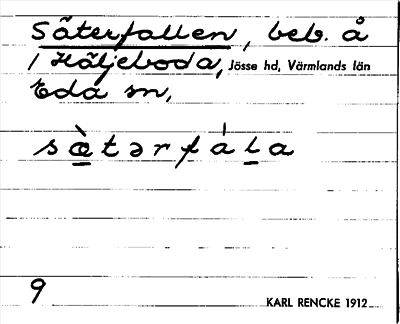 Säterfallen, beb. å
1 Häljeboda, Jösse hd, Värmlands län
Eda sn,
sæ̀tərfála
9
KARL RENCKE 1912